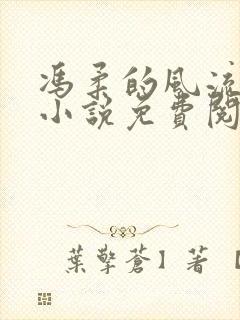 馮柔的風流
小說免費閱
葉擎蒼】著 【